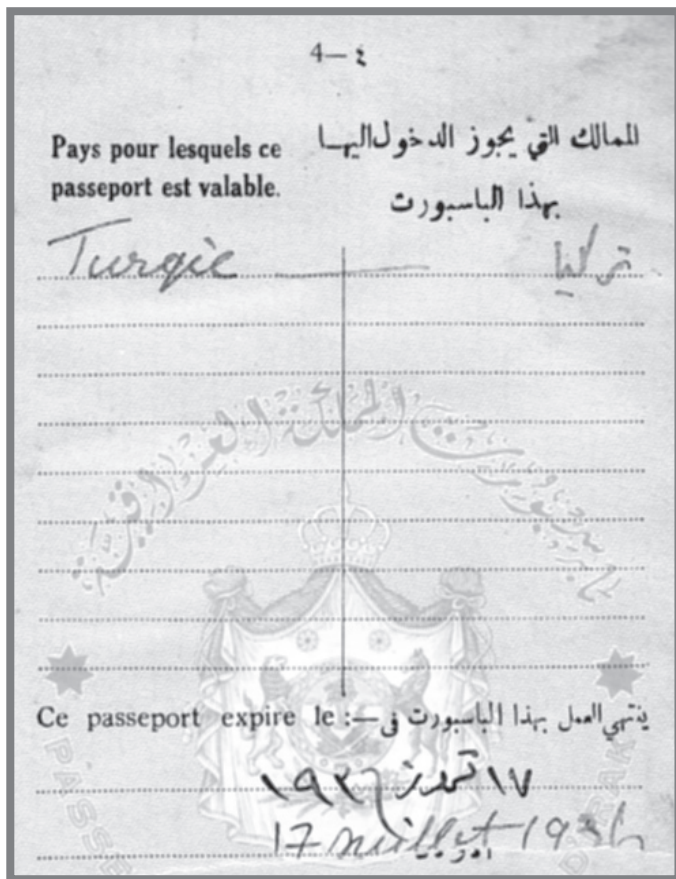 4—٤
Pays pour lesquels ce
passeport est valable.
الممالك التي يجوز الدخول اليها
بهذا الباسبورت
Turqie
تركيا
باسبورت المملكة العراقية
Ce passeport expire le :—
ينتهي العمل بهذا الباسبورت في
١٧ تموز ١٩٣٦
17 1936
PASSE
D'IRAK